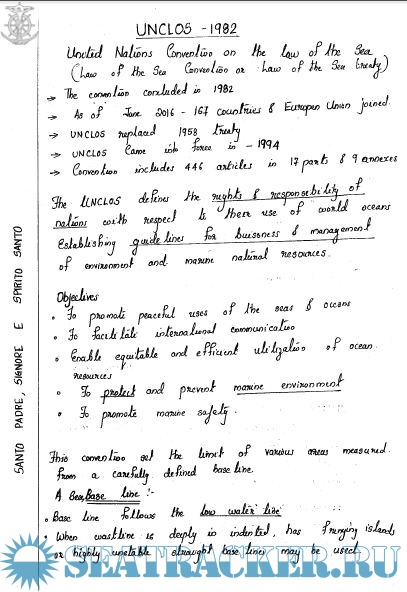 UNCLOS - 1982
United Nations Convention on the law of the Sea
(Law of the Sea Convention or Law of the Sea treaty)
→ The convention concluded in 1982
→ As of June 2016 - 167 countries & European Union joined.
→ UNCLOS replaced 1958 treaty
→ UNCLOS Came into force in - 1994
→ Convention includes 446 articles in 17 parts & 9 annexes
The UNCLOS defines the rights & responsibility of
nations with respect to there use of world oceans
Establishing guidelines for buisness & management
of environment and marine natural resources.
Objectives
• To promote peaceful uses of the seas & oceans
• To facilitate international communicatio
• Enable equitable and efficient utilization of ocean
resources
• To protect and prevent marine environment
• To promote marine safety.
This convention set the limit of various areas measured
from a carefully defined baseline.
A Base line :-
• Base line follows the low water line
• When coastline is deeply in indented, has fringing islands
or highly unstable straight base lines may be used
SANTO PADRE, SIGNORE E SPIRITO SANTO
SEATRACKER.RU